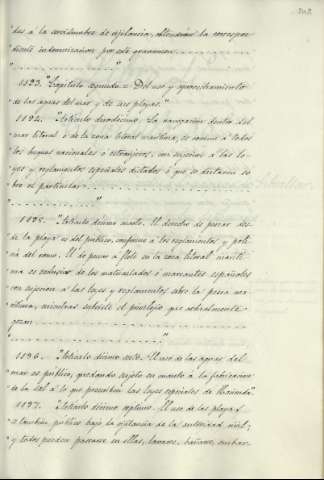 "das a la servidumbre de vigilancia, obtendrán la correspon-
"diente indemnizacion por este gravamen.
" . . . . . . . . . . "
1193. "Capítulo segundo = Del uso y aprovechamiento
"de las aguas del mar y de sus playas."
1194. "Artículo duodécimo. La navegacion dentro del
"mar litoral ó de la zona litoral marítima, es comun á todos
"los buques nacionales ó extranjeros, con sujecion á las le-
"yes y reglamentos especiales dictados ó que se dictaren so-
"bre el particular.
" . . . . . . . . . . "
1195. "Artículo décimo cuarto. El derecho de pescar des-
"de la playa es del público, conforme á los reglamentos y poli-
"cía del ramo. El de pescar á flote en la zona litoral maríti-
"ma es exclusivo de los matriculados ó mareantes españoles
"con sujecion á las leyes y reglamentos sobre la pesca ma-
"rítima, mientras subsista el privilegio que actualmente
"gozan
" . . . . . . . . . . "
1196. "Artículo décimo sexto. El uso de las aguas del
"mar es público, quedando sujeto en cuanto á la fabricacion
"de la sal á lo que prescriben las leyes especiales de Hacienda."
1197. "Artículo décimo séptimo. El uso de las playas
"es tambien público bajo la vigilancia de la autoridad civil;
"y todos pueden pasearse en ellas, lavarse, bañarse, embar-